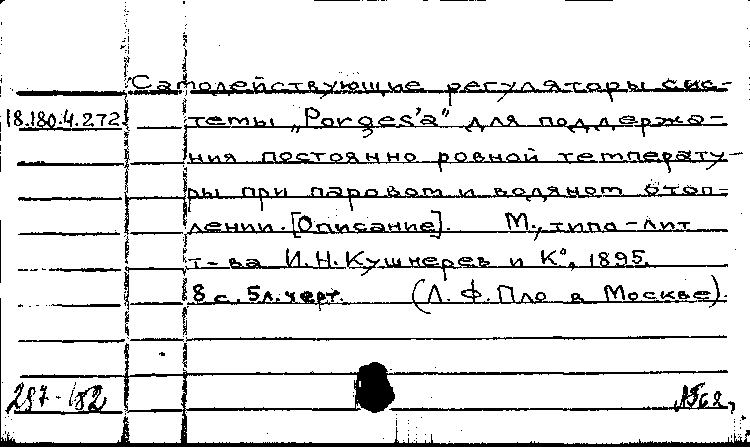 Самодействующие регуляторы сис-
18.180.4.272 темы „Porges'а" для поддержа-
ния постоянно ровной температу-
ры при паровом и водяном отоп-
лении. [Описание]. М., типо-лит
т-ва И.Н. Кушнерев и К°, 1895.
8 с. 5 л. черт. (Л. Ф. Пло в Москве).
287-182